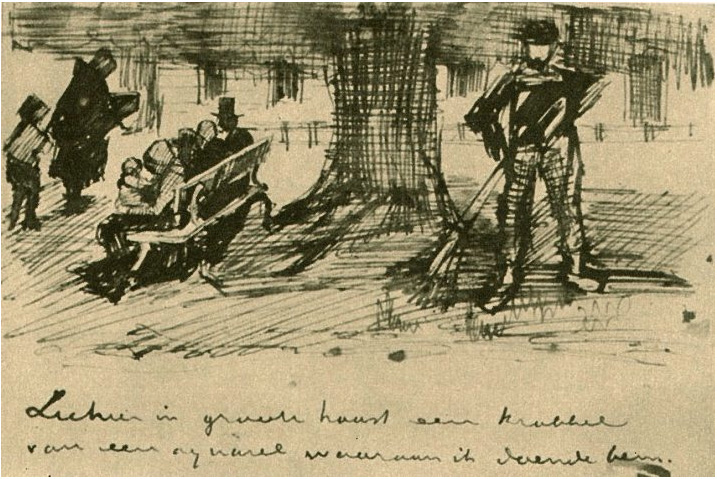 Ziehier in groote haast een krabbel
van een aquarel waaraan ik doende ben.